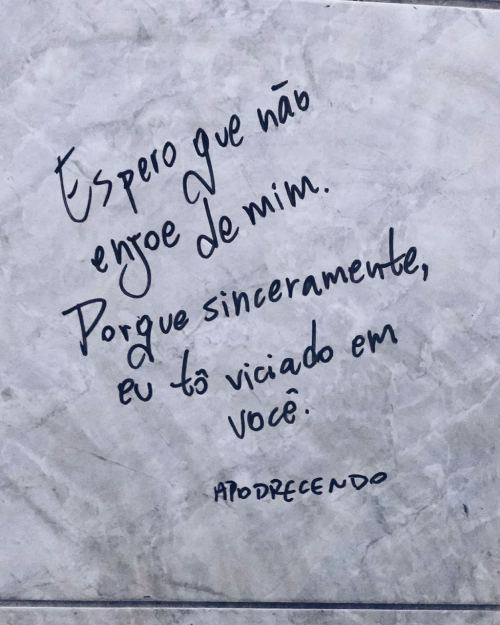 Espero que não
enjoe de mim.
Porque sinceramente,
eu tô viciado em
você.
APODRECENDO